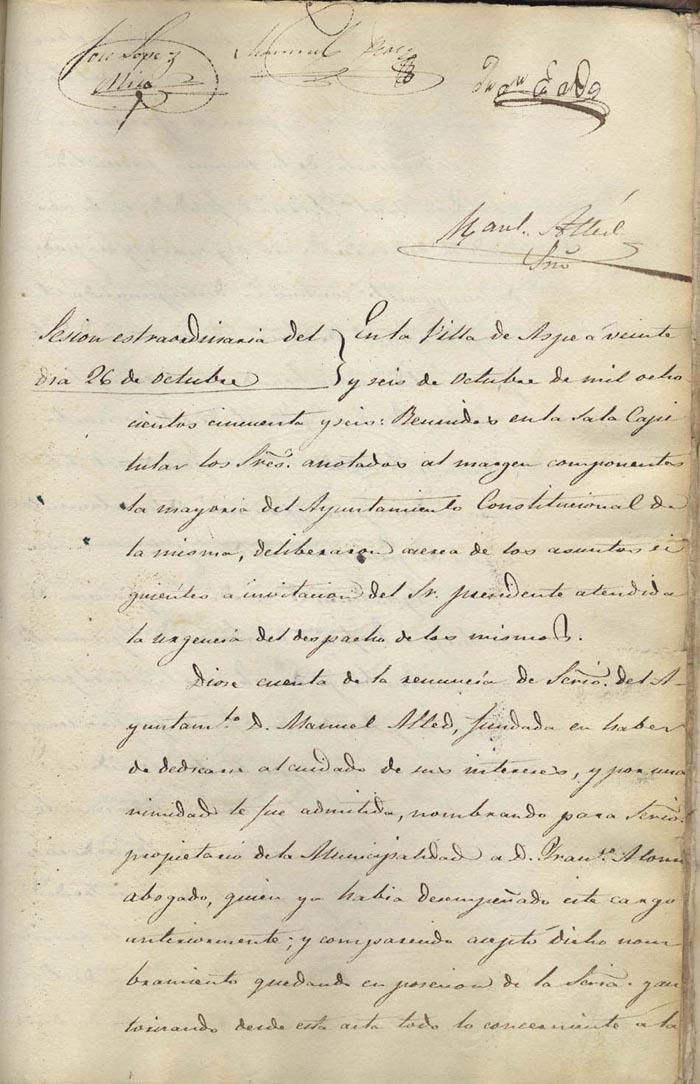 José Lopez
Mira
Manuel
Juan
Manl. Alted
Srio
Sesion estraordinaria del
dia 26 de octubre
En la Villa de Aspe á veinte
y seis de octubre de mil ocho
cientos cincuenta y seis: Reunidos en la Sala Capi
tular los Sres. anotados al margen componentes
la mayoria del Ayuntamiento Constitucional de
la misma, deliberaron acerca de los asuntos si
guientes a invitacion del Sr. presidente atendida
la urgencia del despacho de los mismos.
Diose cuenta de la renuncia de Serio. del A-
yuntamto. D. Manuel Alted, fundada en haber
de dedicarse al cuidado de sus intereses, y por una
nimidad le fue admitida, nombrando para Serio.
propietario de la Municipalidad a D. Franco. Alonso
abogado, quien ya habia desempeñado este cargo
anteriormente; y compareciendo aceptó dicho nom
bramiento quedando en posesion de la Seria. y au
torizando desde esta acta todo lo concerniente á la